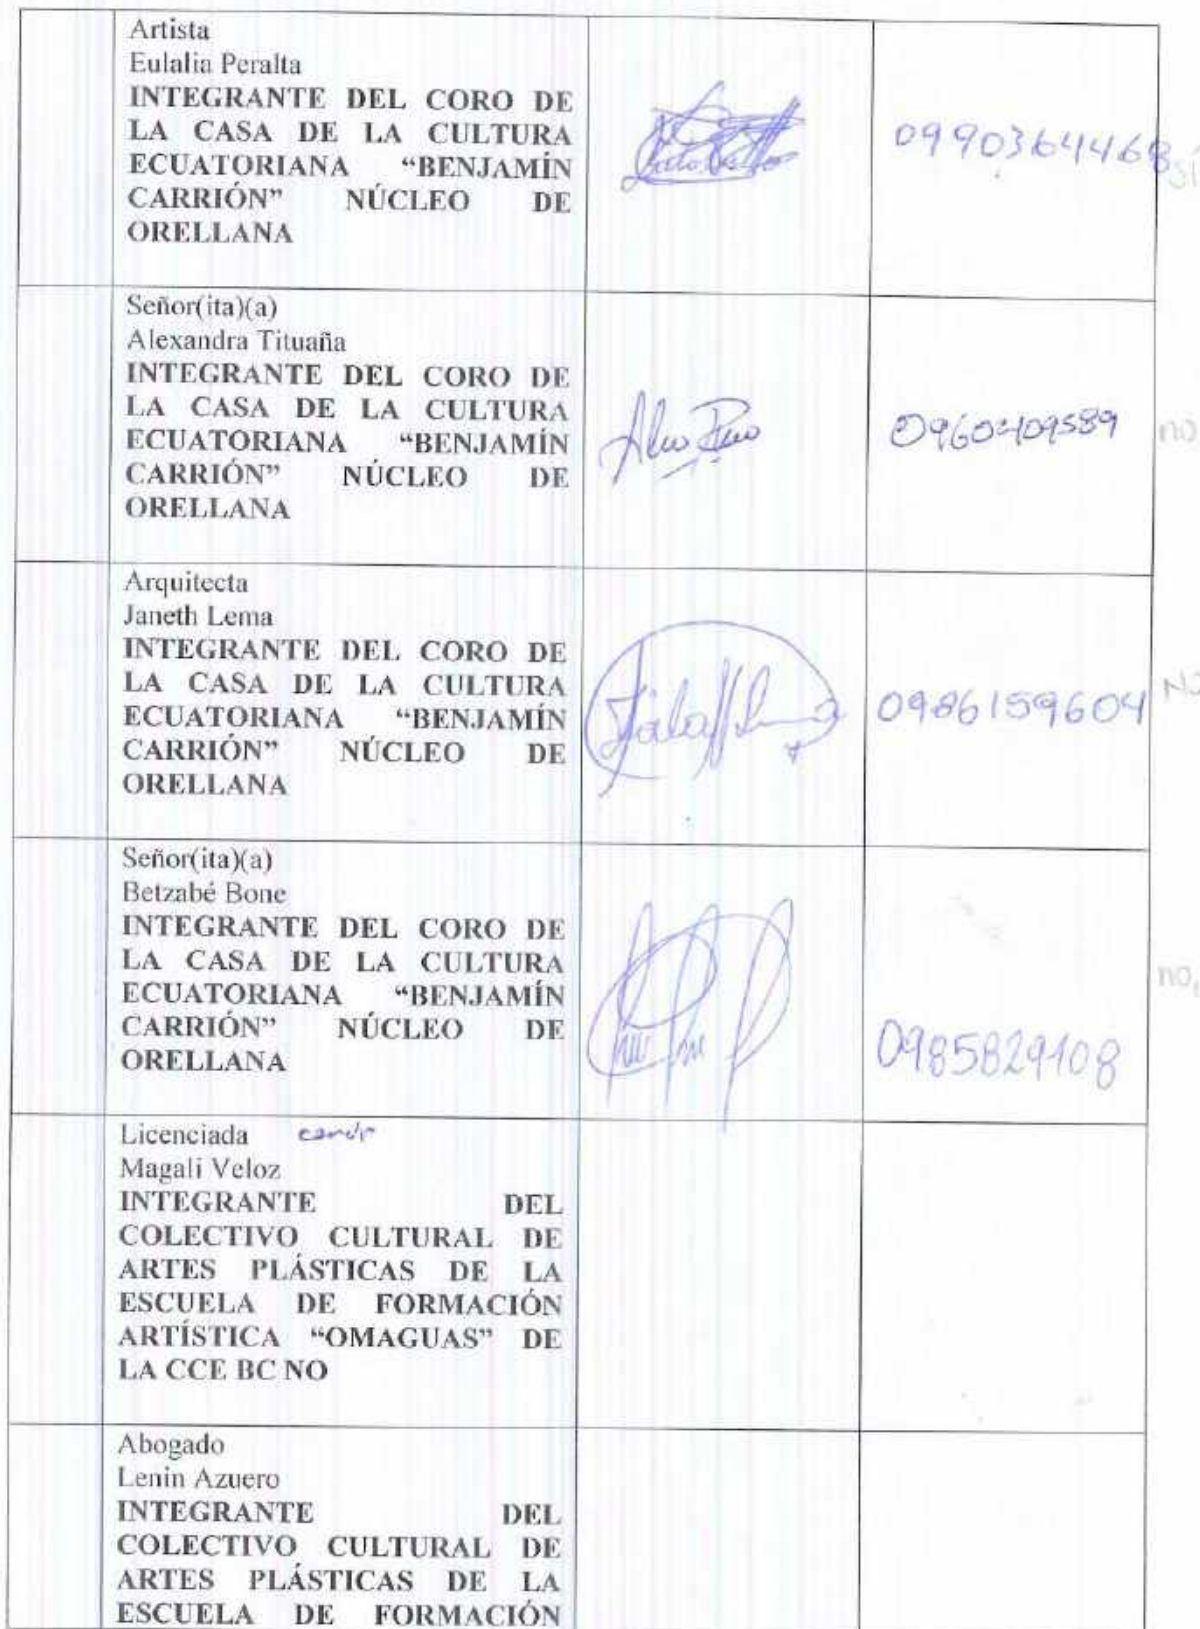 Artista
Eulalia Peralta
INTEGRANTE DEL CORO DE
LA CASA DE LA CULTURA
ECUATORIANA “BENJAMÍN
CARRIÓN” NÚCLEO DE
ORELLANA
0990364468
SÍ
Señor(ita)(a)
Alexandra Tituaña
INTEGRANTE DEL CORO DE
LA CASA DE LA CULTURA
ECUATORIANA “BENJAMÍN
CARRIÓN” NÚCLEO DE
ORELLANA
0960409589
no
Arquitecta
Janeth Lema
INTEGRANTE DEL CORO DE
LA CASA DE LA CULTURA
ECUATORIANA “BENJAMÍN
CARRIÓN” NÚCLEO DE
ORELLANA
0986159604
NO
Señor(ita)(a)
Betzabé Bone
INTEGRANTE DEL CORO DE
LA CASA DE LA CULTURA
ECUATORIANA “BENJAMÍN
CARRIÓN” NÚCLEO DE
ORELLANA
0985829108
no
Licenciada
Magali Veloz
INTEGRANTE DEL
COLECTIVO CULTURAL DE
ARTES PLÁSTICAS DE LA
ESCUELA DE FORMACIÓN
ARTÍSTICA “OMAGUAS” DE
LA CCE BC NO
Abogado
Lenin Azuero
INTEGRANTE DEL
COLECTIVO CULTURAL DE
ARTES PLÁSTICAS DE LA
ESCUELA DE FORMACIÓN